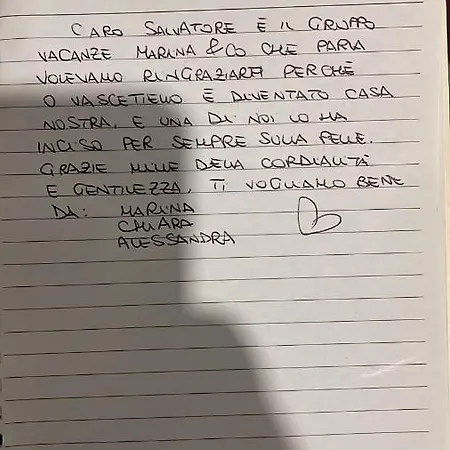 CARO SALVATORE È IL GRUPPO
VACANZE MARINA & CO CHE PARLA
VOLEVAMO RINGRAZIARTI PERCHÈ
O VASCETIELLO È DIVENTATO CASA
NOSTRA, E UNA DI NOI LO HA
INCISO PER SEMPRE SULLA PELLE.
GRAZIE MILLE DELLA CORDIALITÀ
E GENTILEZZA, TI VOGLIAMO BENE
DA: MARINA
CHIARA
ALESSANDRA